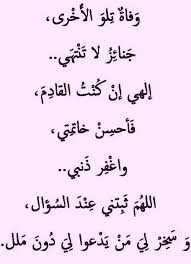 وَفاةٌ تِلوَ الأُخْرى،
جَنائِزُ لا تَنْتَهي..
إلهي إنْ كُنْتُ القادِمَ،
فَأحسِنْ خاتِمتي،
واغْفِر ذَنبي..
اللهُمَ ثَبِتني عِنْدَ السُؤال،
وَ سَخِرْ لِيَ مَنْ يَدْعوا لِيَ دُونَ مَلل.